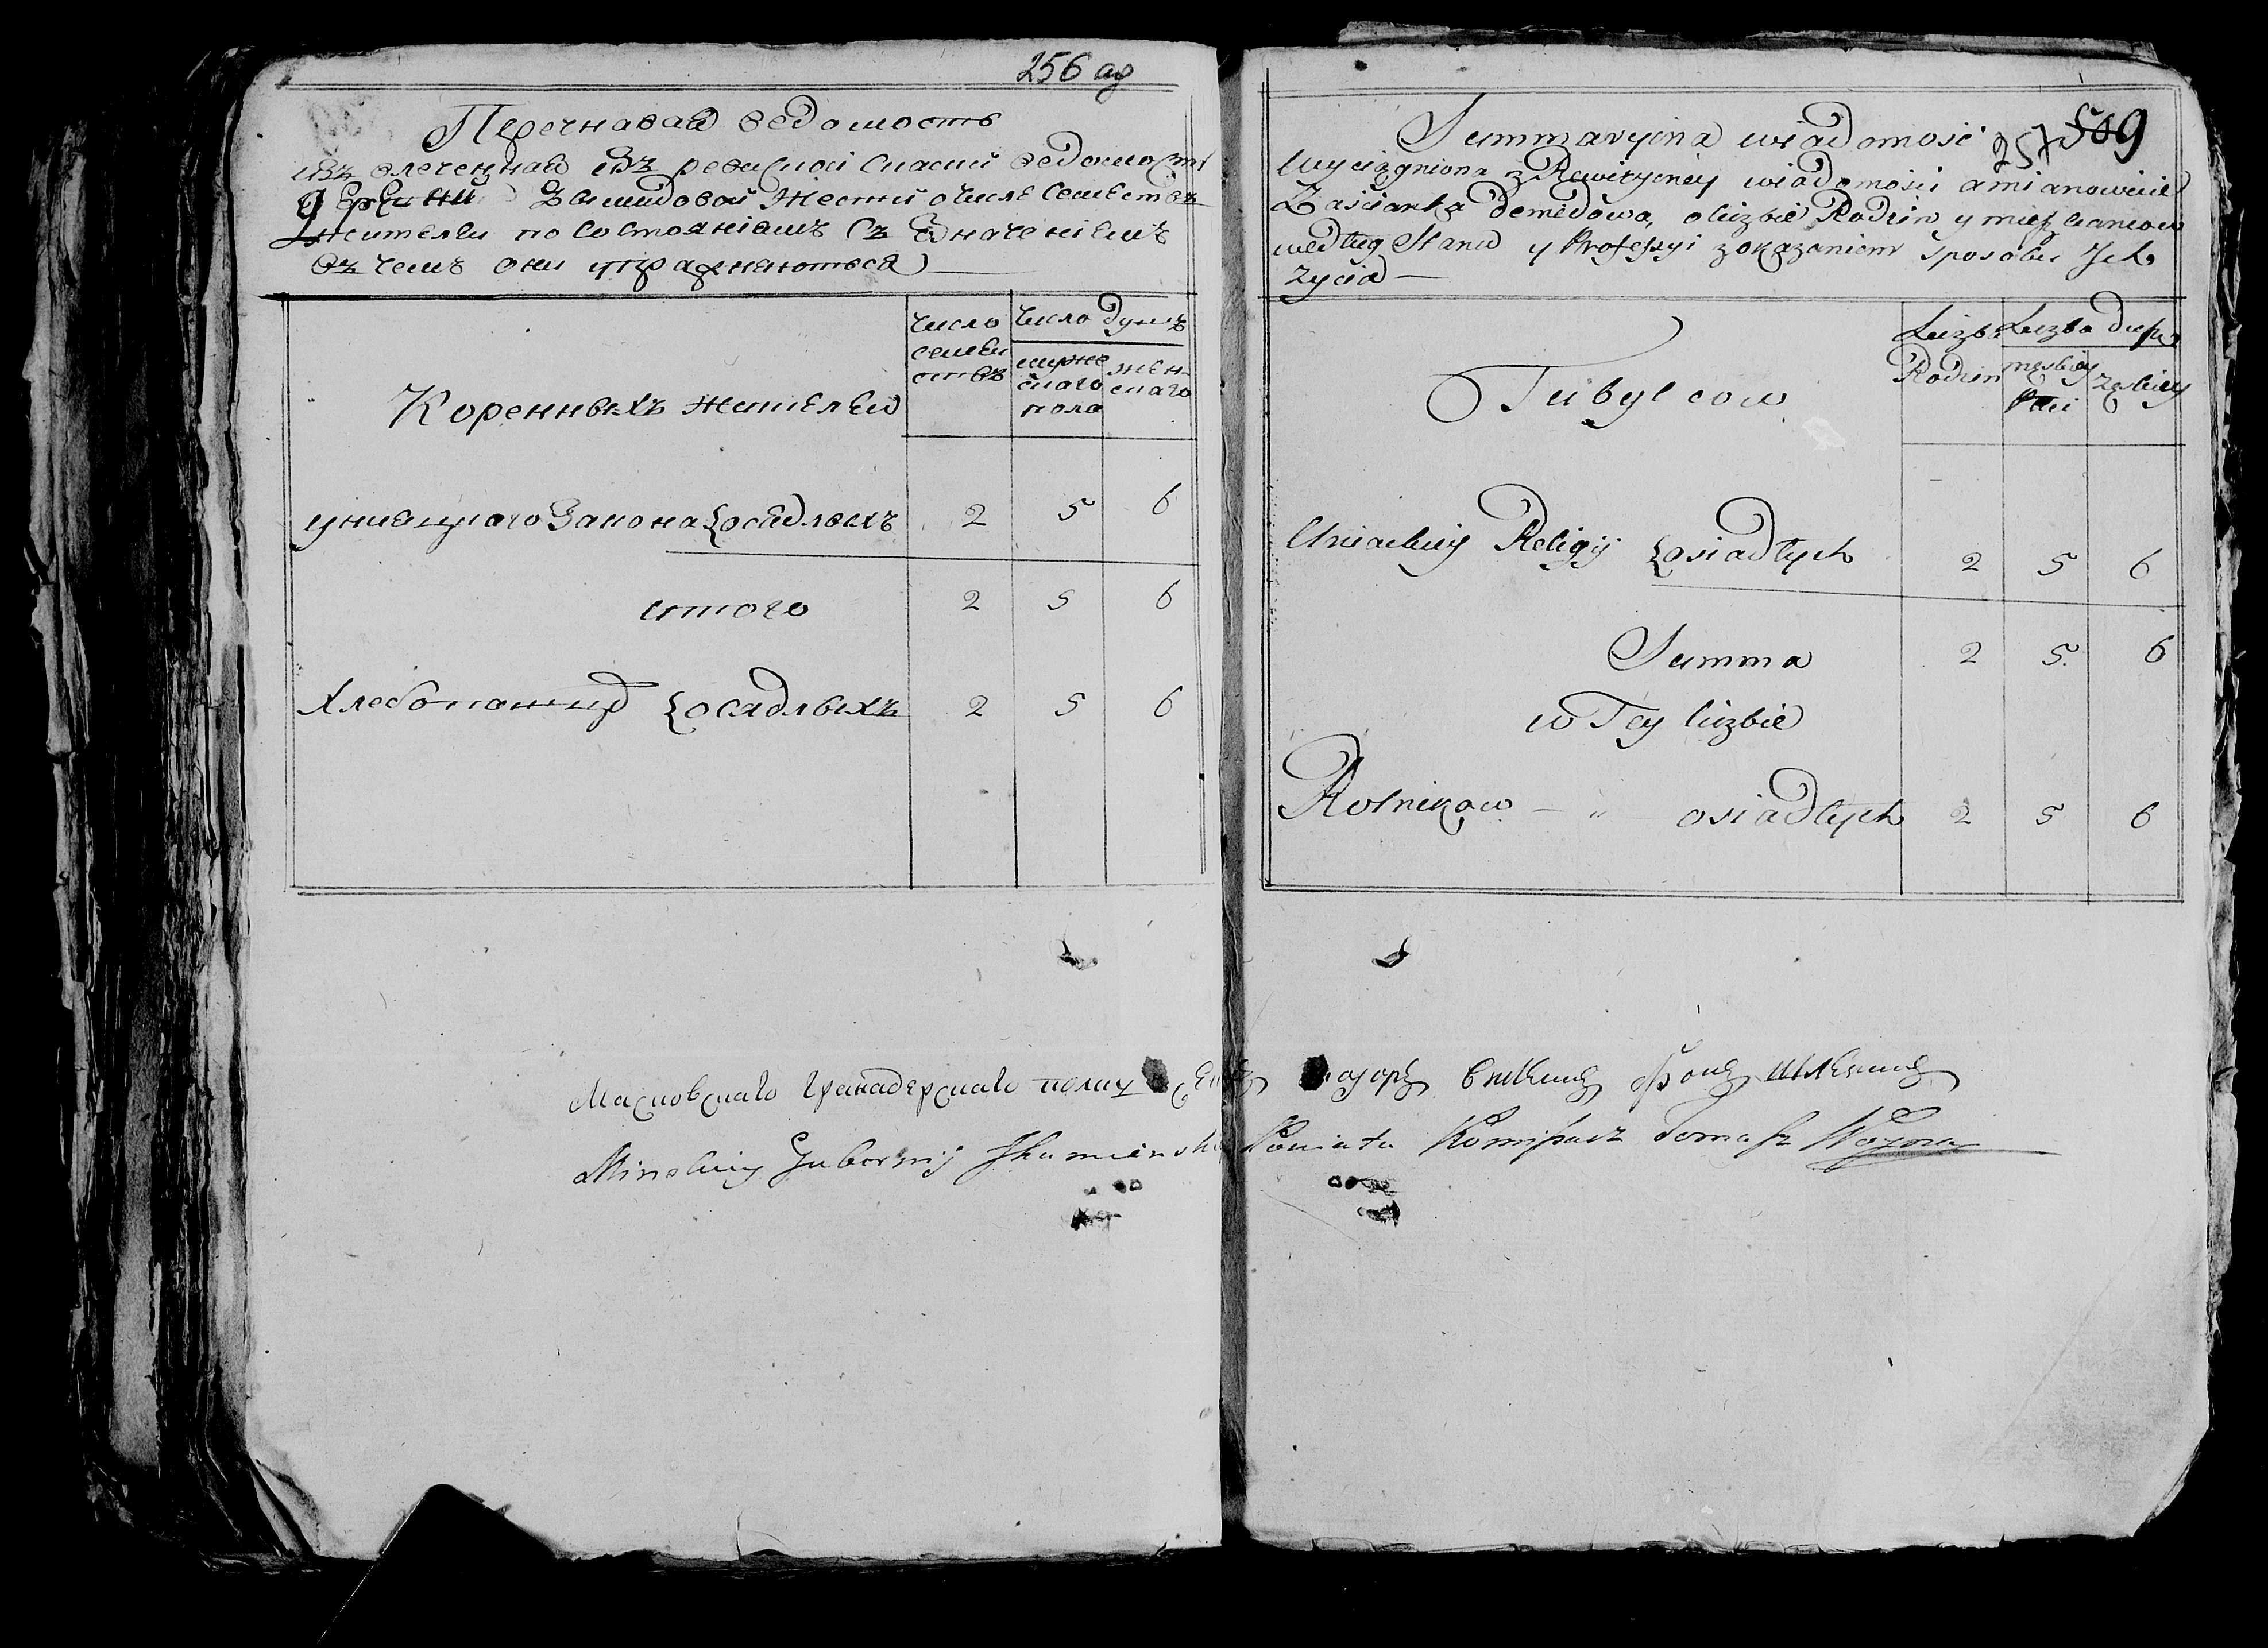 256 ад
Перечневая ведомость
извлеченная изъ ревиской ведомости
деревни числе семействъ
жителей по состояніямъ съ
въ чемъ они упражняются
Коренныхъ жителей
число семействъ
число душъ
мужескаго пола
женскаго
униацкаго Закона осѣдлыхъ 2 5 6
итого 2 5 6
Хлебопашцов осѣдлыхъ 2 5 6
257 509
Summaryina wiadomość
Wyciągniona z Rewizyiney wiadomości a mianowicie
Zaścianka Demidowa, o liczbie Rodzin y mieszkancow
według Stanu y Professyi z okazaniem sposobu Jch
życia —
Tubylcow
Liczba Rodzin
Liczba dusz
męskiey Płci
żeskiey
Uniackiey Religij osiadłych 2 5 6
Summa 2 5 6
w Tey liczbie
Rolnikow — " — osiadłych 2 5 6
Московскаго гранадерскаго полку маіоръ фонъ
Minskiey Gubernij Jhumenskie Powiatu Komissarz Tomasz